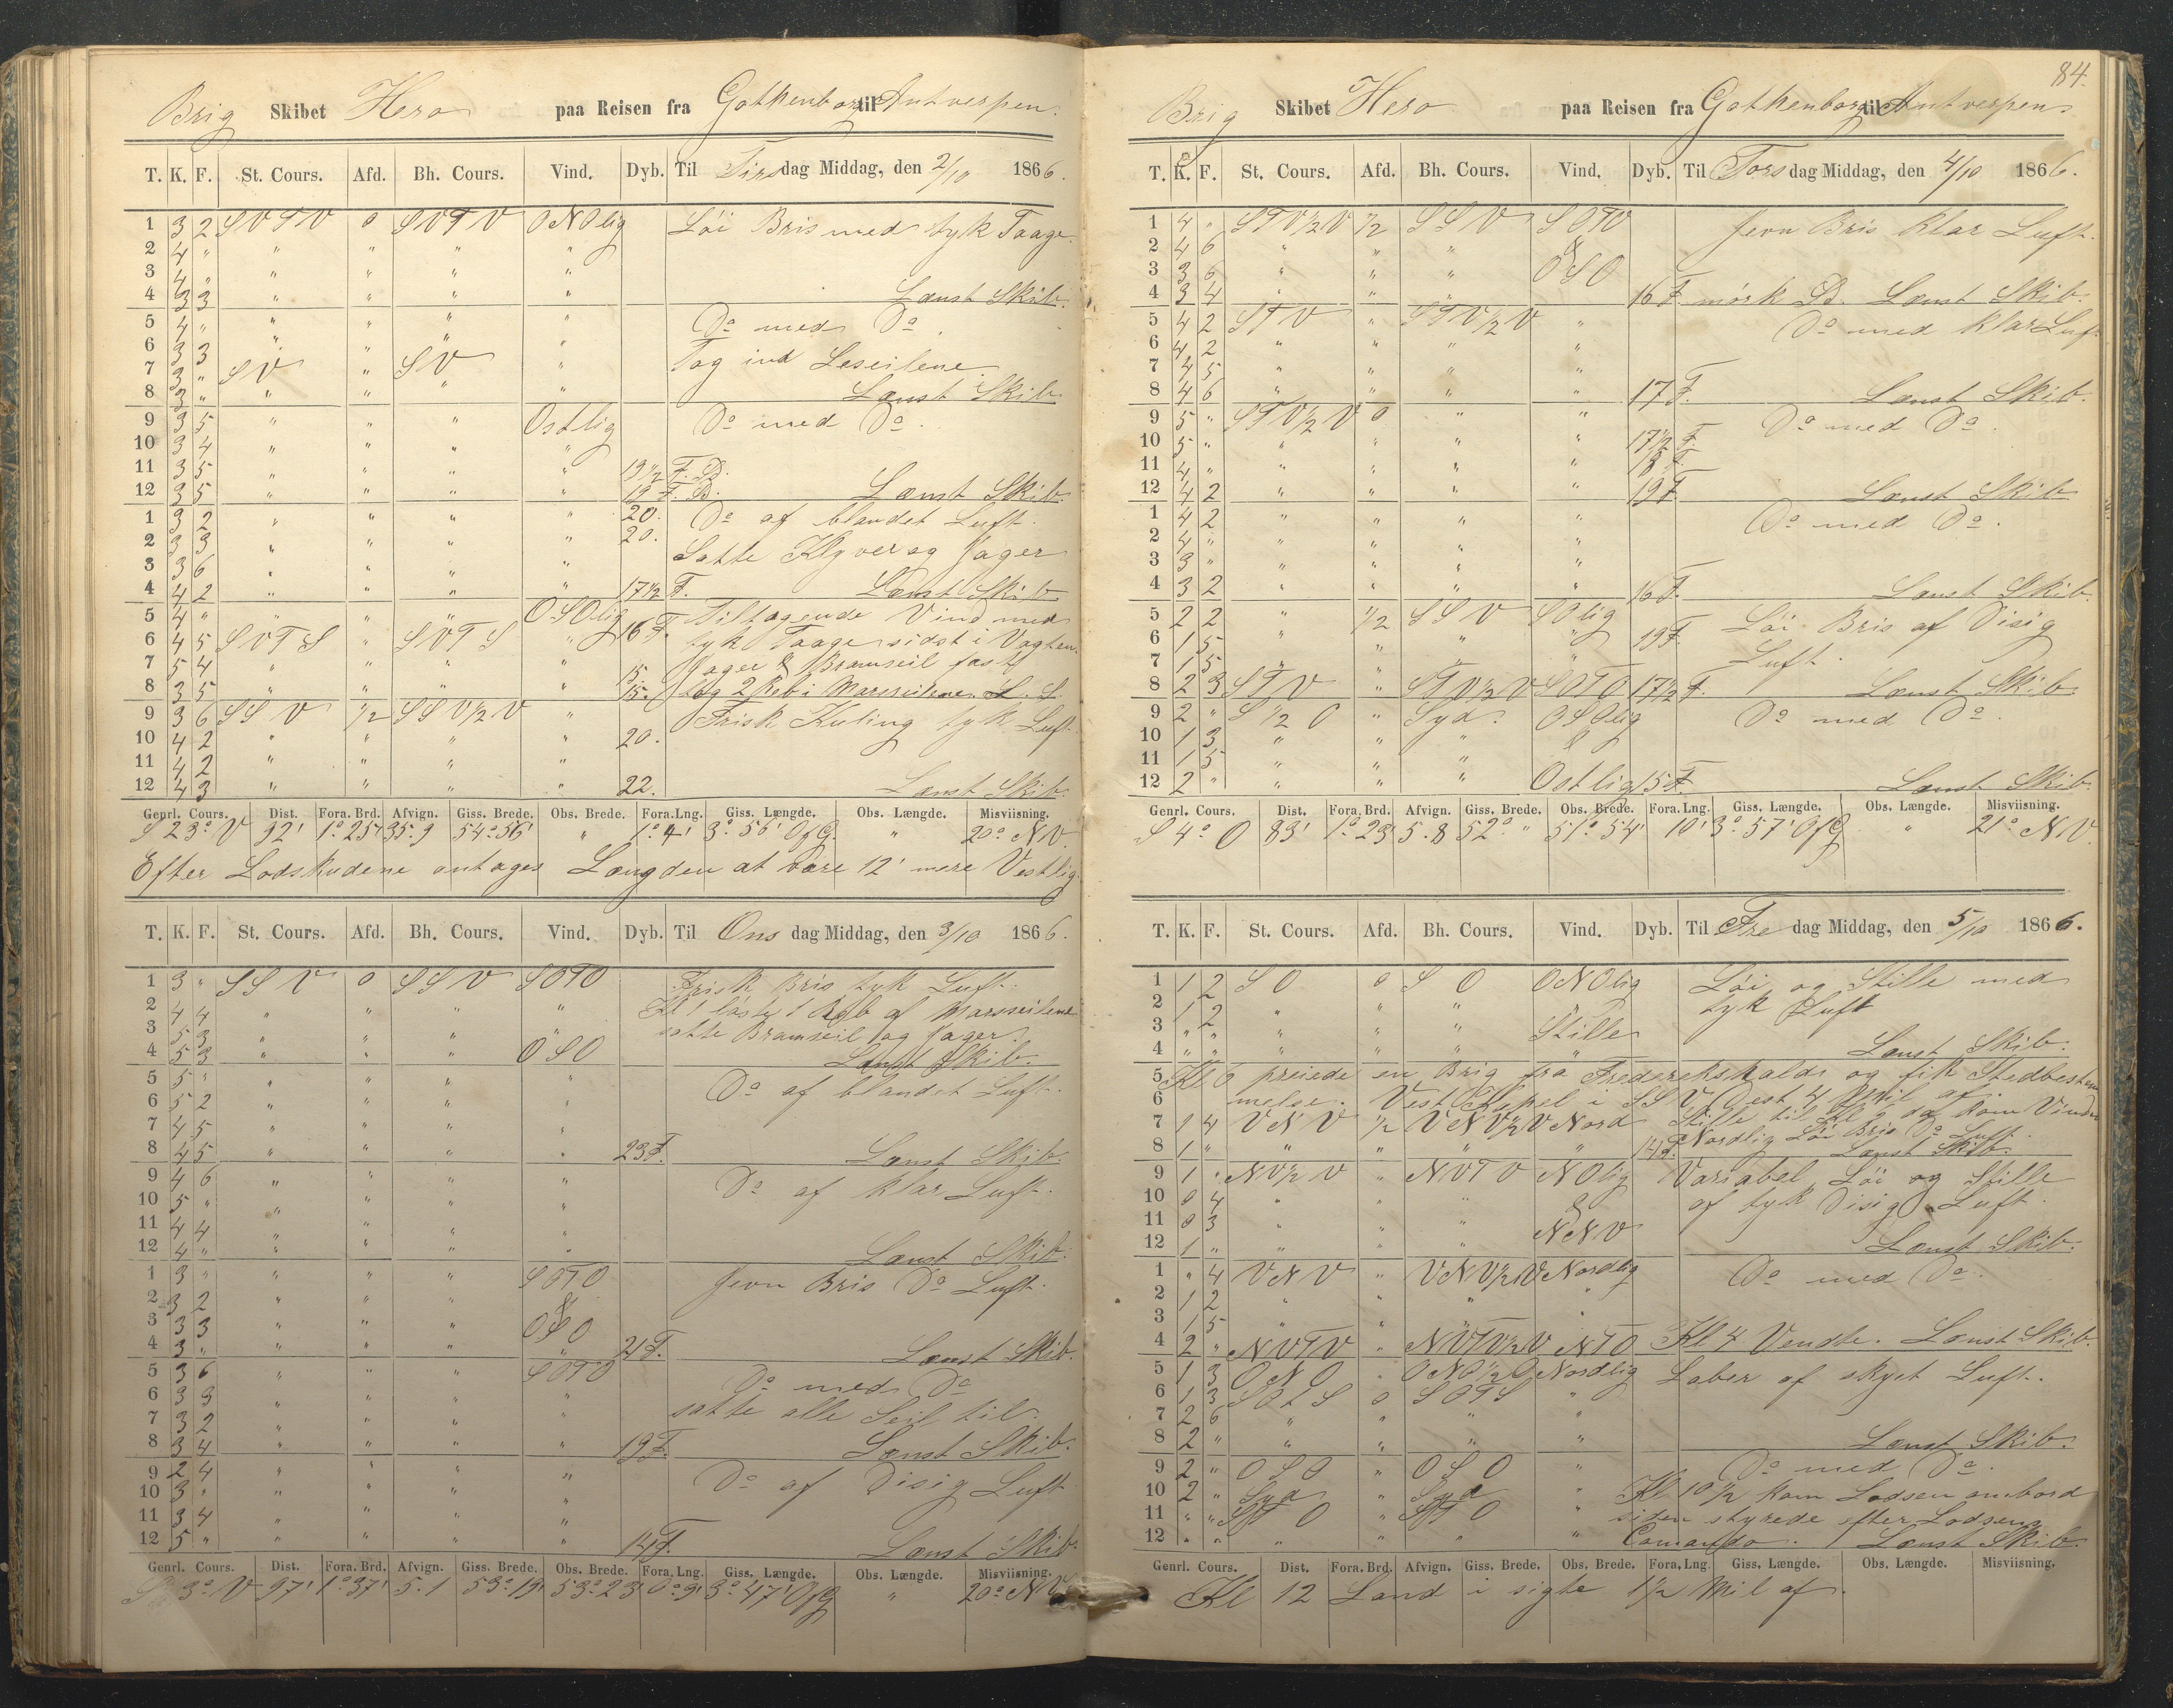 Brig Skibet Hero paa Reisen fra Gothenborg til Antverpen.
T. K. F. St. Cours. Afd. Bh. Cours. Vind. Dyb. Til Tirsdag Middag, den 2/10 1866.
1 3 2 SVTV 0 SVTV ONOlig Löi Bris med tyk Taage.
2 4 " " " " "
3 4 " " " " "
4 3 3 " " " " Lænst Skib.
5 4 " " " " " Do med Do.
6 3 3 " " " "
7 3 " SV " SV " Tog ind Leseilene
8 3 " " " " " Lænst Skib.
9 3 5 " " " Ostlig Do med Do.
10 3 4 " " " "
11 3 5 " " " " 19 1/2 F. B.
12 3 5 " " " " 19 F. B. Lænst Skib.
1 3 2 " " " " 20. Do af blandet Luft.
2 3 3 " " " " 20.
3 3 6 " " " " Satte Klyver og Jager
4 4 2 " " " " 17 1/2 F. Lænst Skib
5 4 " " " " OSOlig 16 F. Tiltagende Vind med
6 4 5 SVTS " SVTS " tyk Taage sidst i Vagten
7 5 4 " " " " 15. Jager & Bramseil fast
8 3 5 " " " " 15. tog 2 Reb i Mersseilene. L. S.
9 3 6 SSV 1/2 SSV1/2V " Frisk Kuling tyk Luft.
10 4 2 " " " " 20.
11 4 2 " " " "
12 4 3 " " " " 22. Lænst Skib.
Genrl. Cours. Dist. Fora. Brd. Afvign. Giss. Brede. Obs. Brede. Fora. Lng. Giss. Længde. Obs. Længde. Misviisning.
S 23° V 92' 1° 25' 35.9 54° 56' " 1° 4' 3° 56' OfG. " 20° NV.
Efter Lodskudene antages Længden at være 12' mere Vestlig
T. K. F. St. Cours. Afd. Bh. Cours. Vind. Dyb. Til Onsdag Middag, den 3/10 1866.
1 3 " SSV 0 SSV SOTO Frisk Bris tyk Luft.
2 4 4 " " " " Kl 1 löste 1 Reb af Marsseilene
3 5 3 " " " " satte Bramseil og Jager.
4 5 3 " " " OSO Lænst Skib.
5 5 " " " " " Do af blandet Luft.
6 5 2 " " " "
7 4 5 " " " "
8 4 5 " " " " 23 F. Lænst Skib.
9 4 6 " " " " Do af klar Luft.
10 5 " " " " "
11 4 4 " " " "
12 4 " " " " " Lænst Skib.
1 3 " " " " SOTO Jevn Bris Do Luft.
2 3 2 " " " &
3 3 3 " " " OSO
4 3 " " " " " 21 F. Lænst Skib.
5 3 6 " " " SOTO Do med Do
6 3 3 " " " " satte alle Seil til.
7 3 2 " " " "
8 3 4 " " " " 19 F. Lænst Skib.
9 2 4 " " " " Do af Disig Luft
10 3 " " " " "
11 3 4 " " " "
12 5 " " " " " 14 F. Lænst Skib
Genrl. Cours. Dist. Fora. Brd. Afvign. Giss. Brede. Obs. Brede. Fora. Lng. Giss. Længde. Obs. Længde. Misviisning.
S 3° V 97' 1° 37' 5.1 53° 19' 53° 23' 0° 9' 3° 47' OfG " 20° NV
84.
Brig Skibet Hero paa Reisen fra Gothenborg til Antverpen.
T. K. F. St. Cours. Afd. Bh. Cours. Vind. Dyb. Til Torsdag Middag, den 4/10 1866.
1 4 " STV1/2V 1/2 SSV SOTO Jevn Bris klar Luft.
2 4 6 " " " &
3 3 6 " " " OSO
4 3 4 " " " 16 F. mörk B. Lænst Skib.
5 4 2 STV " STV1/2V " Do med klar Luft
6 4 2 " " " "
7 4 5 " " " "
8 4 6 " " " " 17 F. Lænst Skib.
9 5 " STV1/2V 0 " " Do med Do.
10 5 " " " " " 17 1/2 F.
11 4 " " " " " 18 F.
12 4 2 " " " " 19 F. Lænst Skib
1 4 2 " " " " Do med Do.
2 4 " " " " "
3 3 " " " " "
4 3 2 " " " " 16 F. Lænst Skib.
5 2 2 " 1/2 SSV SOlig Löi Bris af Disig
6 1 5 " " " " 19 F. Luft.
7 1 5 " " " "
8 2 3 STV " STV1/2V SOTO 17 1/2 F. Lænst Skib
9 2 " S1/2O " Syd. OSOlig Do med Do.
10 1 3 " " " &
11 1 5 " " "
12 2 " " " " Ostlig 15 F. Lænst Skib.
Genrl. Cours. Dist. Fora. Brd. Afvign. Giss. Brede. Obs. Brede. Fora. Lng. Giss. Længde. Obs. Længde. Misviisning.
S 4° O 83' 1° 23' 5.8 52° " 51° 54' 10' 3° 57' OfG " 21° NV.
T. K. F. St. Cours. Afd. Bh. Cours. Vind. Dyb. Til Fredag Middag, den 5/10 1866.
1 1 2 SO 0 SO ONOlig Löi og Stille med
2 1 2 " " " tyk Luft
3 " " " " " Stille
4 " " " " " " Lænst Skib.
5 Kl 6 preiede en Brig fra Frederekshald og fik Stedbestem
6 melse. Vest Kapel i SSV Dest 4 Mil af
7 1 4 VNV 1/2 VNV1/2V Nord Stille til Kl 7 da kom Vinden
8 1 " " " " " 14 F. Nordlig Löi Bris Do Luft. Lænst Skib.
9 1 " NV1/2V " NVTV NOlig Variabel Löi og Stille
10 0 4 " " " & af tyk Disig Luft.
11 0 3 " " " NNV
12 1 " " " " Lænst Skib.
1 " 4 VNV " VNV1/2V Nordlig Do med Do.
2 1 2 " " " "
3 1 5 " " "
4 2 " NVTV " NVTV1/2V NTO Kl 4 Vendte. Lænst Skib.
5 1 3 ONO " ONO1/2O Nordlig Laber af skyet Luft.
6 1 3 SOTS 0 SOTS "
7 2 6 " " " "
8 2 " " " " " Lænst Skib.
9 2 " OSO " OSO " Do med Do.
10 2 " Syd " Syd " Kl 10 1/2 kom Lodsen ombord
11 " " STO " STO " siden styrede efter Lodsens
12 " " " " " " Comando. Lænst Skib.
Genrl. Cours. Dist. Fora. Brd. Afvign. Giss. Brede. Obs. Brede. Fora. Lng. Giss. Længde. Obs. Længde. Misviisning.
Kl 12 Land i sigte 1 1/2 Mil af.